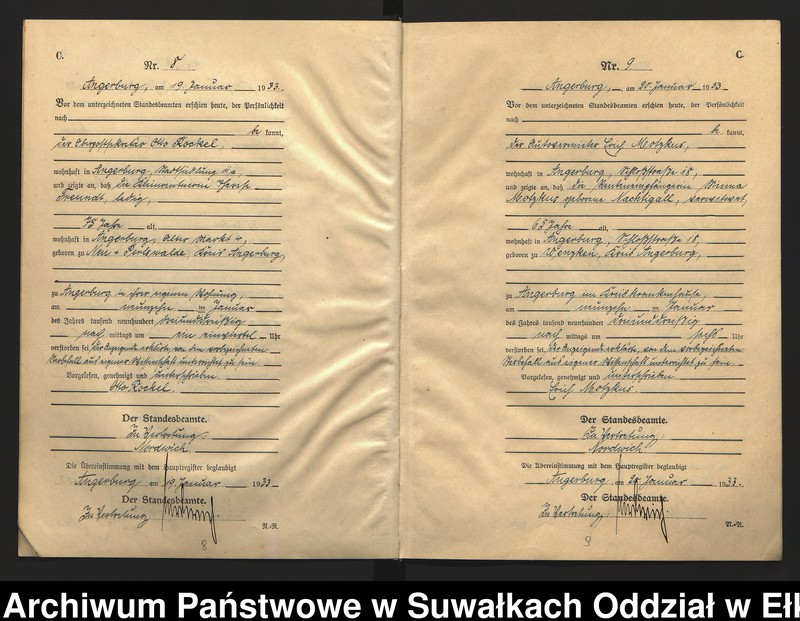 C.
Nr. 8
Angerburg, am 19. Januar 1933.
Vor dem unterzeichneten Standesbeamten erschien heute, der Persönlichkeit
nach
be kannt,
der Oberpostsekretär Otto Rockel.
wohnhaft in Angerburg, Stadtsiedlung
und zeigte an, daß die Kleinrentnerin
Freundt, ledig,
75 Jahre alt,
wohnhaft in Angerburg, Alter Markt 4,
geboren zu Neu-Perlswalde, Kreis Angerburg,
zu Angerburg in ihrer eigenen Wohnung,
am neunzehn ten Januar
des Jahres tausend neunhundert dreiunddreißig
nach mittags um ein einviertel Uhr
verstorben sei. Der Anzeigende erklärte, von dem vorbezeichneten
Sterbefall aus eigener Wissenschaft unterrichtet zu sein.
Vorgelesen, genehmigt und unterschrieben.
Otto Rockel.
Der Standesbeamte.
In Vertretung:
Nordwich.
Die Übereinstimmung mit dem Hauptregister beglaubigt
Angerburg am 19. Januar 1933.
Der Standesbeamte.
In Vertretung:
N.-R.
8
C.
Nr. 9.
Angerburg, am 20. Januar 1933.
Vor dem unterzeichneten Standesbeamten erschien heute, der Persönlichkeit
nach
be kannt,
der Autovermieter Erich Motzkus,
wohnhaft in Angerburg, Schloßstraße 18,
und zeigte an, daß die Rentenempfängerin Minna
Motzkus geborene Nachtigall, verwitwet,
65 Jahre alt,
wohnhaft in Angerburg, Schloßstraße 18,
geboren zu Wenzken, Kreis Angerburg,
zu Angerburg im Kreiskrankenhause,
am neunzehn ten Januar
des Jahres tausend neunhundert dreiunddreißig
nach mittags um sechs Uhr
verstorben sei. Der Anzeigende erklärte, von dem vorbezeichneten
Sterbefall aus eigener Wissenschaft unterrichtet zu sein.
Vorgelesen, genehmigt und unterschrieben.
Erich Motzkus.
Der Standesbeamte.
In Vertretung:
Nordwich.
Die Übereinstimmung mit dem Hauptregister beglaubigt
Angerburg, am 20. Januar 1933.
Der Standesbeamte.
In Vertretung:
N.-R.
9
Archiwum Państwowe w Suwałkach Oddział w Ełk